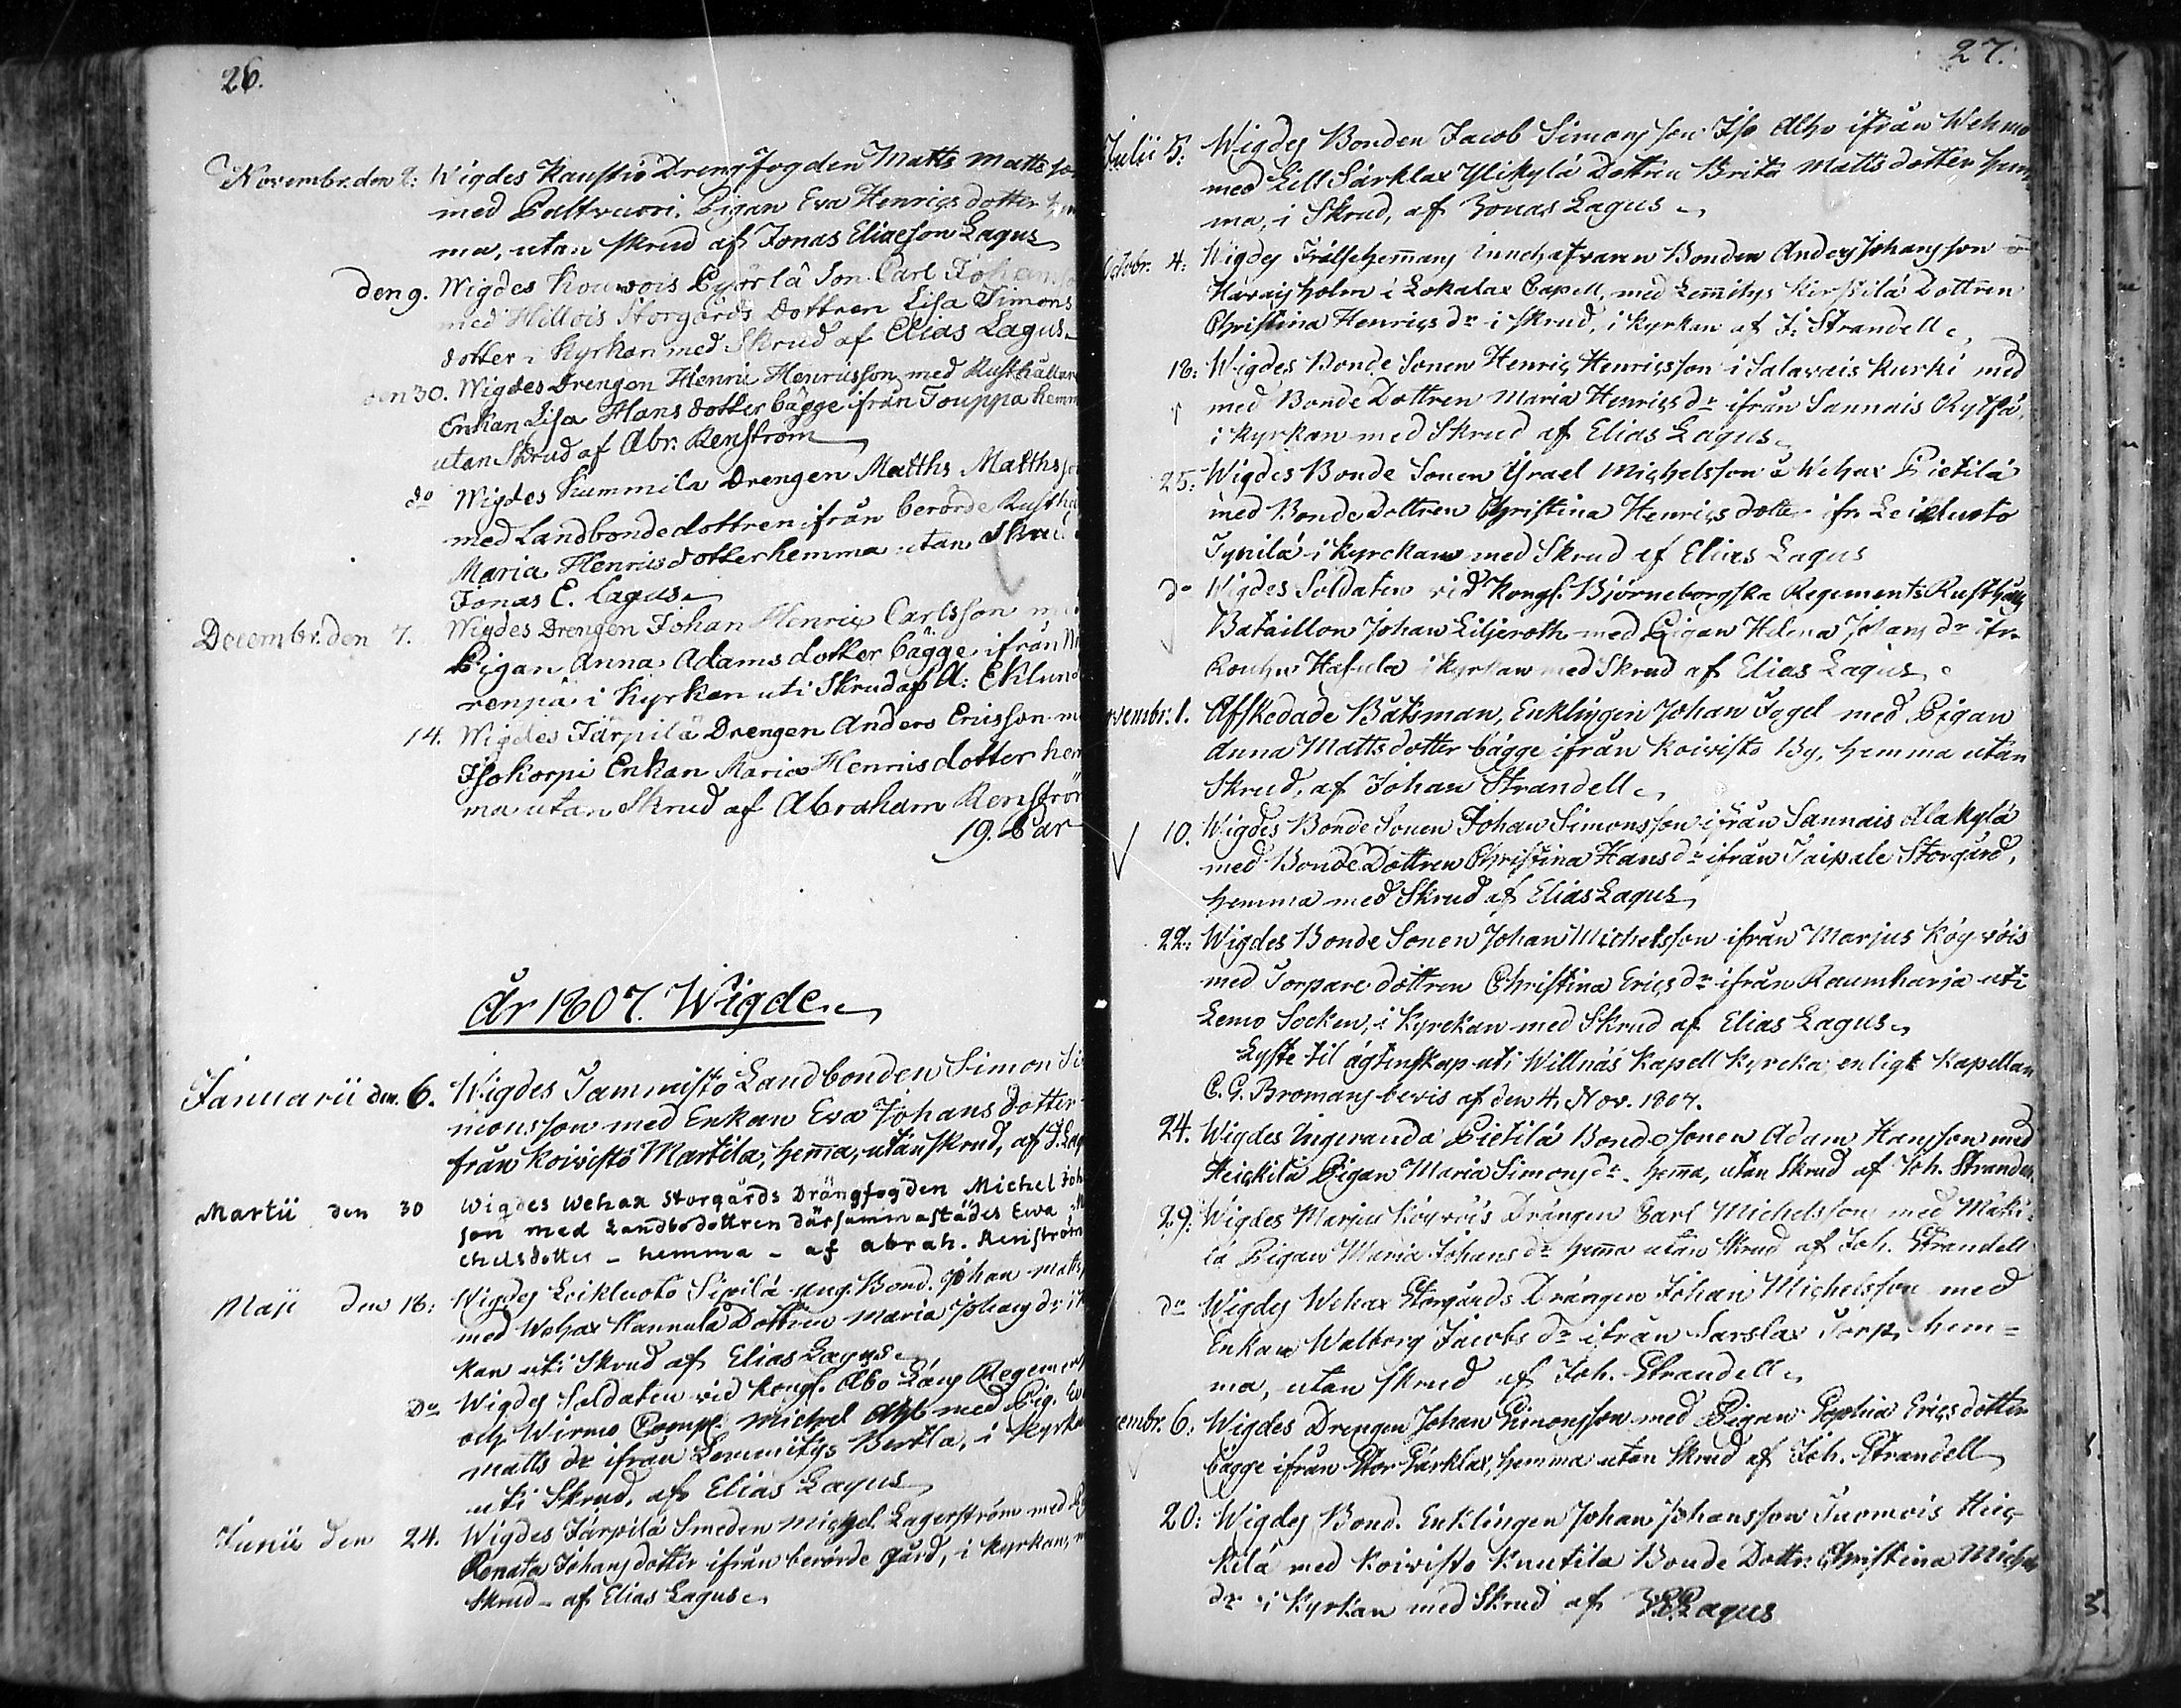 26.
Novembr. den 2: Wigdes Kaustio Drengfogden Matts Matts so
med Paltvuori Pigan Eva Henrics dotter hem
ma, utan skrud af Jonas Eliaeson Lagus
den 9. Wigdes Kouvois Pyörlä Son Carl Johans
med Hillois Storgårds Dottren Lisa Simons
dotter i Kyrkan med Skrud af Elias Lagus
den 30. Wigdes Drengen Henric Henricsson med Rusthållare
Enkan Lisa Hans dotter bägge ifrån Touppa hemm
utan Skrud af Abr. Renström
do Wigdes Kummila Drengen Matths Matthsso
med Landbondedottren ifrån berörde Rusthå
Maria Henricsdotter hemma utan Skrud
Jonas E. Lagus
Decembr. den 7. Wigdes Drengen Johan Henric Carlsson me
Pigan Anna Adamsdotter bägge ifrån
renpä i Kyrkan uti Skrud af A: Eklund
14. Wigdes Järpilä Drengen Anders Ericsson m
Isokorpi Enkan Maria Henricsdotter hem
ma utan Skrud af Abraham Renström
19. Par
År 1807. Wigde
Januarii den 6. Wigdes Tammisto Landbonden Simon Si
monsson med Enkan Eva Johans dotter
från Koivisto Martila, hemma, utan skrud, af J. Lag
Martii den 30 Wigdes Wehax Storgårds Drängfogden Michel Joh
son med Landbodottren därsammastädes Ewa Mi
chelsdotter - hemma - af Abrah. Renström
Maji den 18: Wigdes Leikluoto Sipilä ung. Bond. Johan Mats
med Wehax Hannula Dottren Maria Johans dr i k
kan uti Skrud af Elias Lagus
Do Wigdes Soldaten vid Kongl. Åbo Läns Regemen
och Wirmo Comp. Michel Ahl med Pig. Ev
Matts dr ifrån Lemmitys Bertla, i Kyrka
uti Skrud, af Elias Lagus
Junii den 24. Wigdes Järpilä Smeden Michel Lagerström med
Renata Johansdotter ifrån berörde gård, i Kyrkan, m
Skrud - af Elias Lagus
27.
Julii 5: Wigdes Bonden Jacob Simonsson Iso Alho ifrån Wehmo
med Lill Särklax Ylikylä Dottren Brita Mattsdotter hem
ma, i Skrud, af Jonas Lagus
Octobr. 4: Wigdes Frälsehemmans Innehafvaren Bonden Anders Johansson å
holm i Lokalax Capell, med Lemmitys Kirstilä Dottren
Christina Henrics dr i skrud, i kyrkan af J. Strandell
18: Wigdes Bonde Sonen Henric Henricsson i Salavais Kurki med
med Bonde Dottren Maria Henrics dr ifrån Sannais
i kyrkan med Skrud af Elias Lagus
25: Wigdes Bonde Sonen Israel Michelsson å Wehax Pietilä
med Bonde Dottren Christina Henrics dotter ifr. Leikluoto
i kyrckan med Skrud af Elias Lagus
do Wigdes Soldaten vid Kongl. Björneborgska Regements Rusthålls
Bataillon Johan Liljeroth med Pigan Helena Johans dr ifr.
Rouhu Hakula i kyrkan med Skrud af Elias Lagus
vembr. 1. Afskedade Båtsman, Enklingen Johan Fogel med Pigan
Anna Mattsdotter bägge ifrån Koivisto By, hemma utan
Skrud, af Johan Strandell
10. Wigdes Bonde Sonen Johan Simonsson ifrån Sannais Alakylä
med Bonde Dottren Christina Hans dr ifrån Taipale Storgård,
hemma med Skrud af Elias Lagus
22: Wigdes Bonde Sonen Johan Michelsson ifrån Marjus Köyvöis
med Torpare dottren Christina Erics dr ifrån Raumharja uti
Lemo Socken, i Kyrckan med Skrud af Elias Lagus
Lyste til ägtenskap uti Willnäs Kapell Kyrcka, enligt Kapellan
C. G. Bromans bevis af den 4 Nov. 1807.
24. Wigdes Ingeranda Pietilä Bondesonen Adam Hansson med
Heickilä Pigan Maria Simons dr. hemma, utan Skrud af Joh. Strandell
29. Wigdes Marjus Köyvöis Drängen Carl Michelsson med Mäki
lä Pigan Maria Johans dr hemma utan Skrud af Joh. Strandell
do Wigdes Wehax Storgårds Drängen Johan Michelsson med
Enkan Walborg Jacobs dr ifrån Sarslax Torp, hem=
ma, utan skrud af Joh. Strandell
cembr. 6: Wigdes Drengen Johan Simonsson med Pigan Sophia Erics dotter
bägge ifrån Stor Särklax, hemma utan Skrud af Joh. Strandell
20: Wigdes Bond. Enklingen Johan Johansson Tuomois Heic
kilä med Koivisto Knutila Bonde Dottr. Christina Michels
dr i Kyrkan med Skrud af Lagus